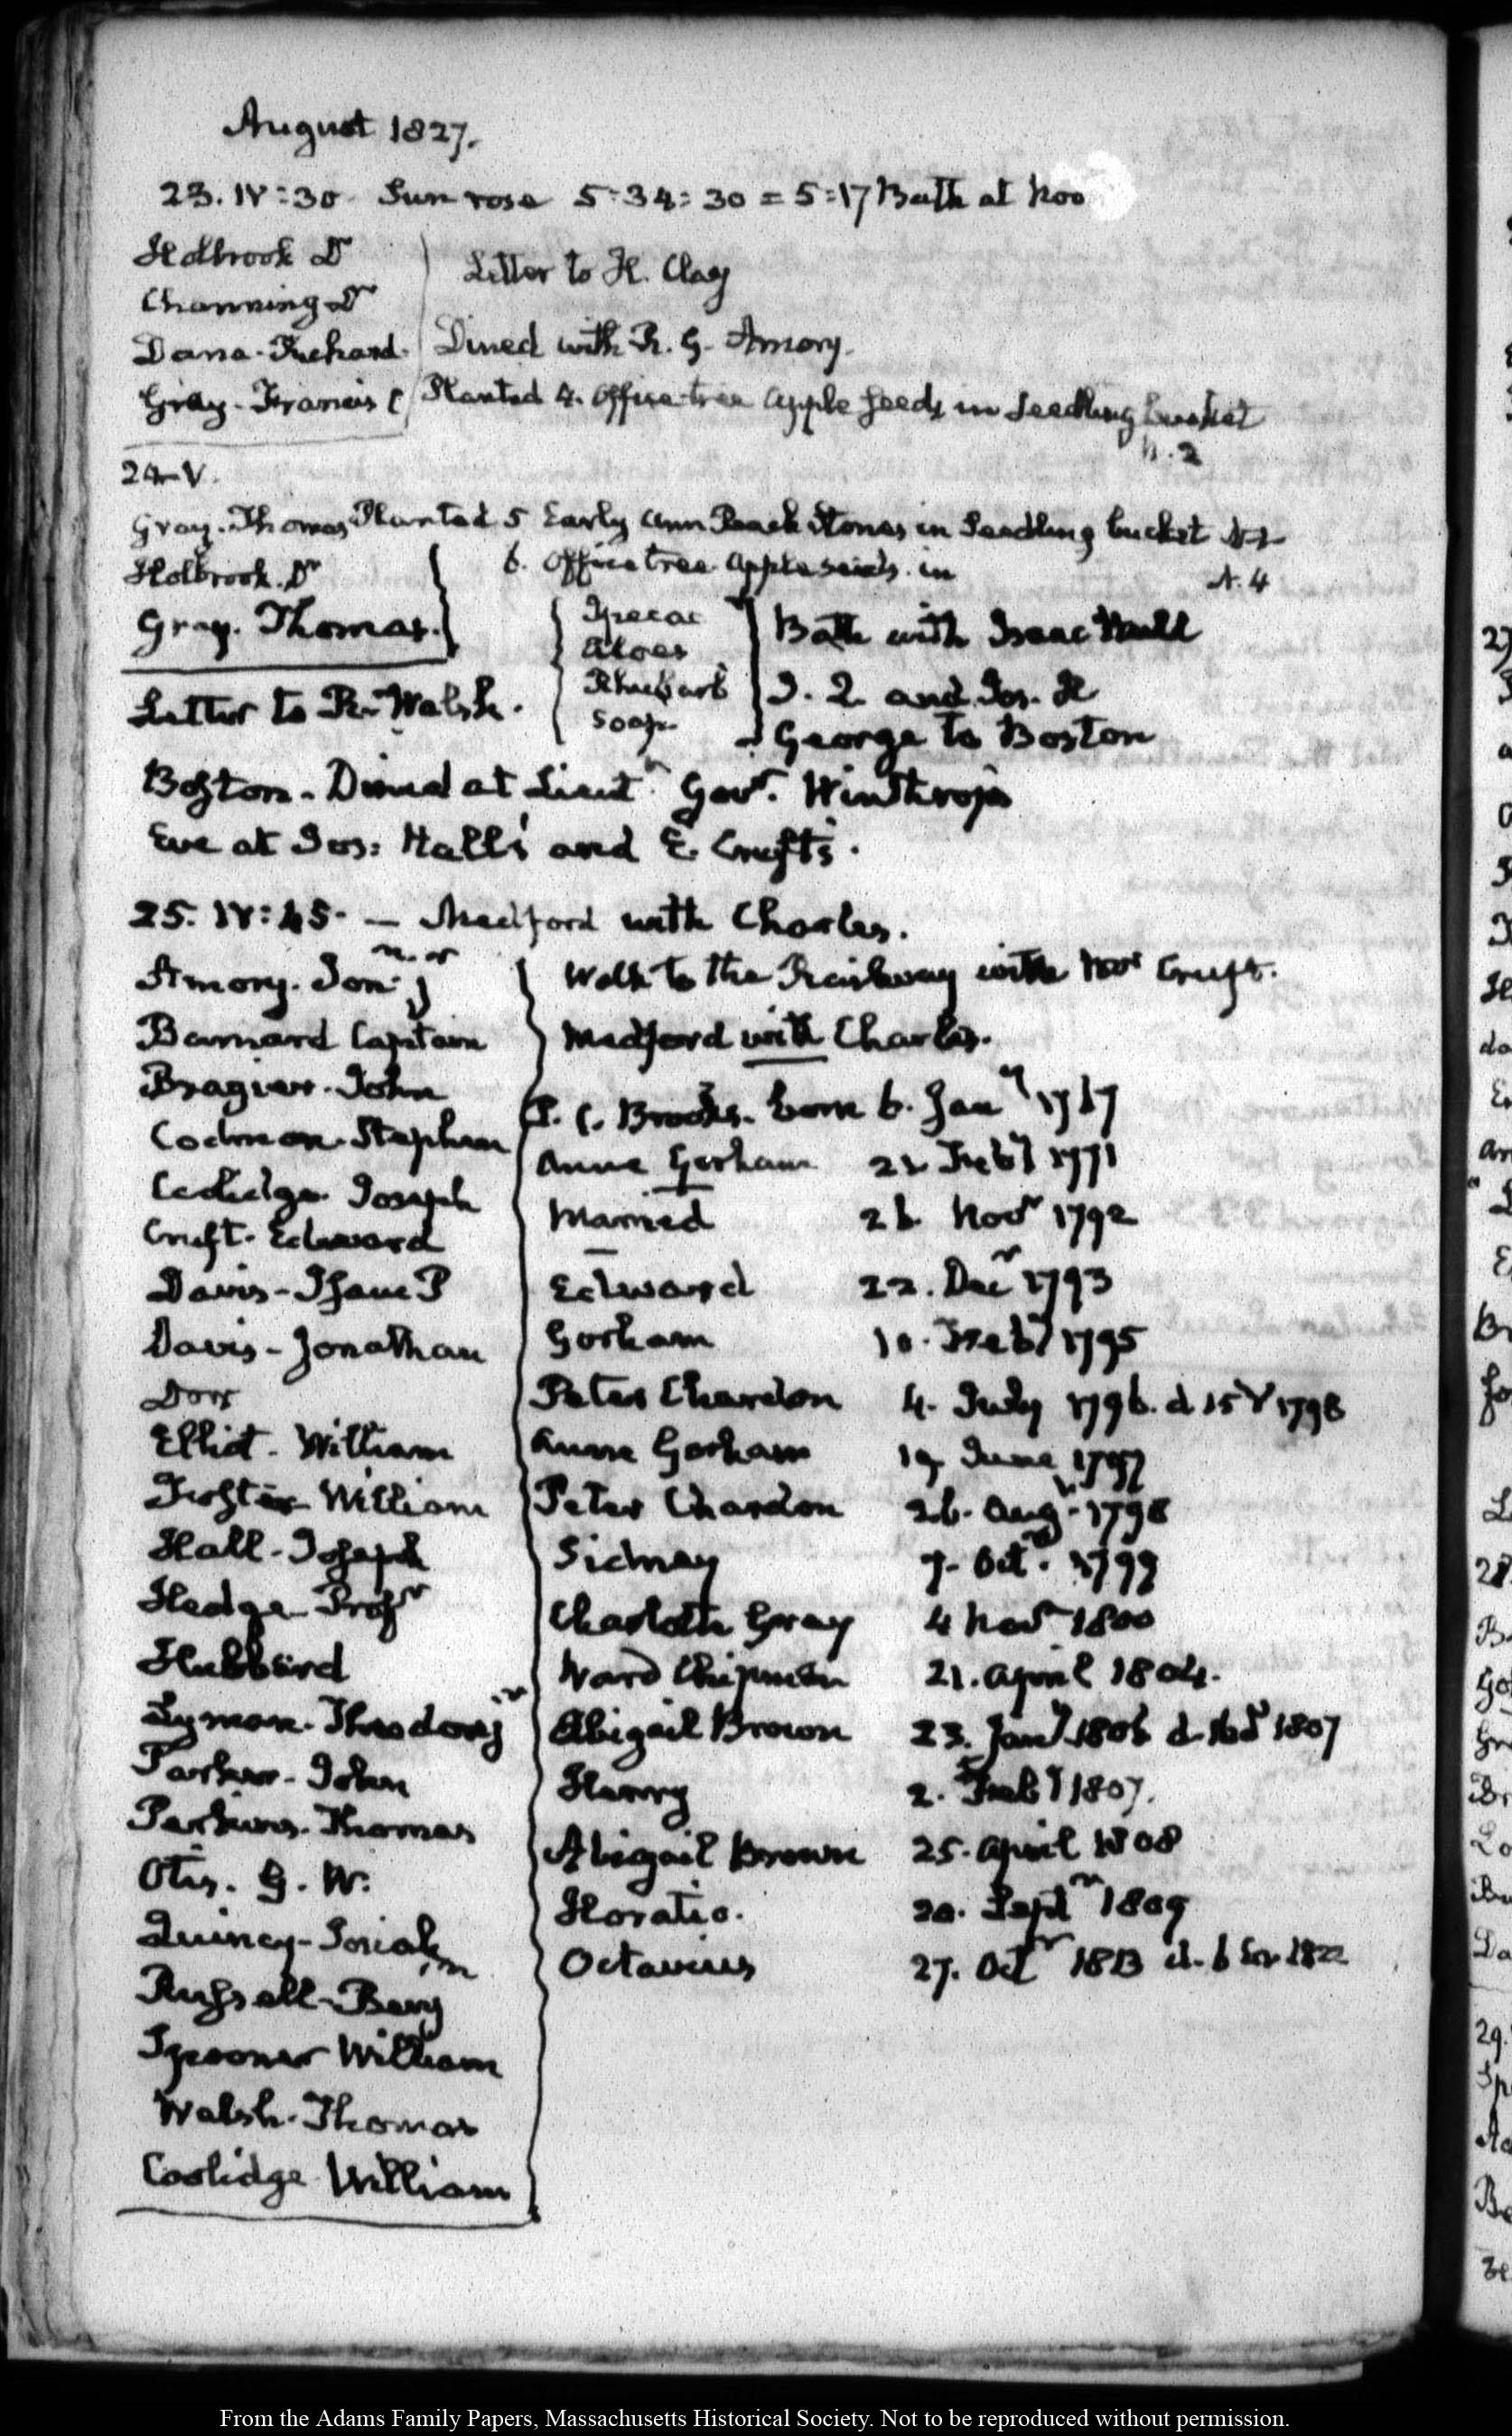 August 1827.
23. IV:30. Sun rose 5:34:30 = 5:17 Bath at Noo
Holbrook Dr
Letter to H. Clay
Channing Dr
Dana. Richard.
Dined with R. G. Amory.
Gray. Francis C
Planted 4. Office tree apple seeds in Seedling bucket
N. 2
24. V.
Gray. Thomas Planted 5 Early Ann Peach Stones in Seedling bucket
Holbrook. Dr
6. Office tree apple seeds in N. 4
Gray. Thomas.
Ipecac
Aloes
Rhubarb
Soap.
Bath with Isaac Hull
J. Q. and Jos. H
George to Boston
Letter to R. Walsh.
Boston. Dined at Lieut. Govr. Winthrop's
Eve at Jos: Hall's and E. Cruft's.
25. IV:45. — Medford with Charles.
Amory. Jon: jr
Barnard Captain
Codman. Stephen
Coolidge Joseph
Cruft. Edward
Davis. Isaac P
Davis. Jonathan
Dorr
Elliot. William
Foster William
Hall. Joseph
Hedge Profr
Hubbard
Lyman. Theodore jr
Parker. John
Perkins. Thomas
Otis. G. W.
Quincy. Josiah
Russell. Benj
Spooner William
Walsh. Thomas
Coolidge William
Walk to the Railway with Cruft.
Medford with Charles.
P. C. Brooks. born 6. Jany 1767
Anne Gorham 21 Feby 1771
Married 26 Novr 1792
Edward 22. Decr 1793
Gorham 10. Feby 1795
Peter Chardon 4. July 1796. d. 15 1798
Anne Gorham 19 June 1797
Peter Chardon 26. Aug. 1798
Sidney 7. Oct. 1799
Charlotte Gray 4 Novr 1800
Ward Chipman 21. April 1804.
Abigail Brown 23. Jany 1806 d. 1807
Henry 2. Feby 1807.
Abigail Brown 25. April 1808
Horatio. 20. Septr 1809
Octavius 27. Octr 1813 d. 6 1822
From the Adams Family Papers, Massachusetts Historical Society. Not to be reproduced without permission.